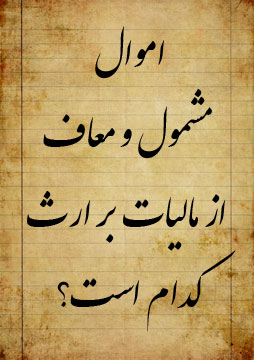 اموال
مشمول و معاف
از مالیات بر ارث
کدام است؟